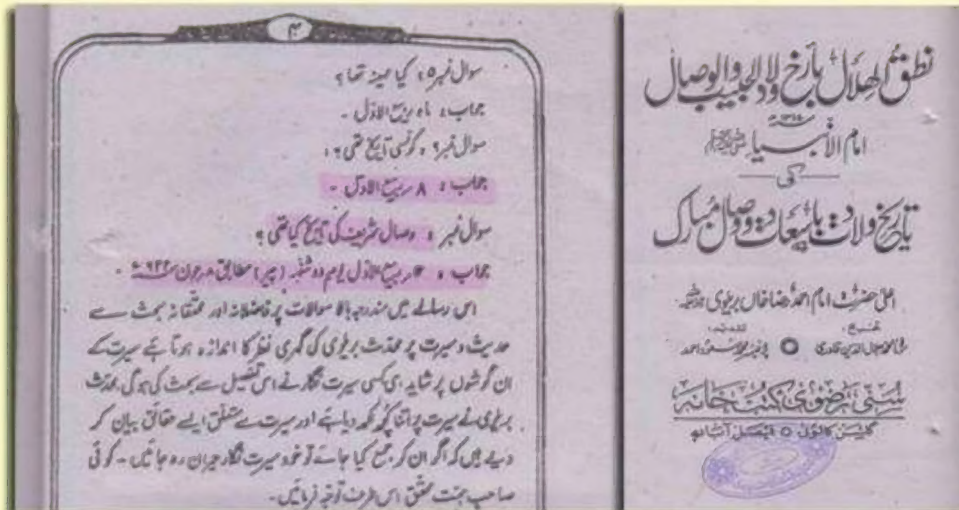 ۴
سوال نمبر ۵ ، کیا مہینہ تھا ؟
جواب ، ماہ ربیع الاوّل ۔
سوال نمبر ۶ ، کونسی تاریخ تھی ؟ ،
جواب ، ۸ ربیع الاوّل ۔
سوال نمبر ، وصال شریف کی تاریخ کیا تھی ؟
جواب ، ربیع الاوّل یوم دو شنبہ (پیر) مطابق ۸ جون ۶۳۲ء ۔
اس رسالے میں مندرجہ بالا سوالات پر فاضلانہ اور محققانہ بحث سے
حدیث و سیرت پر محدث بریلوی کی گہری نظر کا اندازہ ہوتا ہے سیرت کے
ان گوشوں پر شاید ہی کسی سیرت نگار نے اس تفصیل سے بحث کی ہوگی محدث
بریلوی نے سیرت پر اتنا کچھ لکھ دیا ہے اور سیرت سے متعلق ایسے حقائق بیان کر
دیے ہیں کہ اگر ان کو جمع کیا جائے تو خود سیرت نگار حیران رہ جائیں ۔ کوئی
صاحب ہمت محقق اس طرف توجہ فرمائیں ۔
نطق الھلال بارخ ولاد الحبیب والوصال
امام الانبیاء ﷺ
کی
تاریخ ولادت باسعادت و وصال مبارک
اعلیٰ حضرت امام احمد رضا خاں بریلوی
سنی رضوی کتب خانہ
فیصل آباد